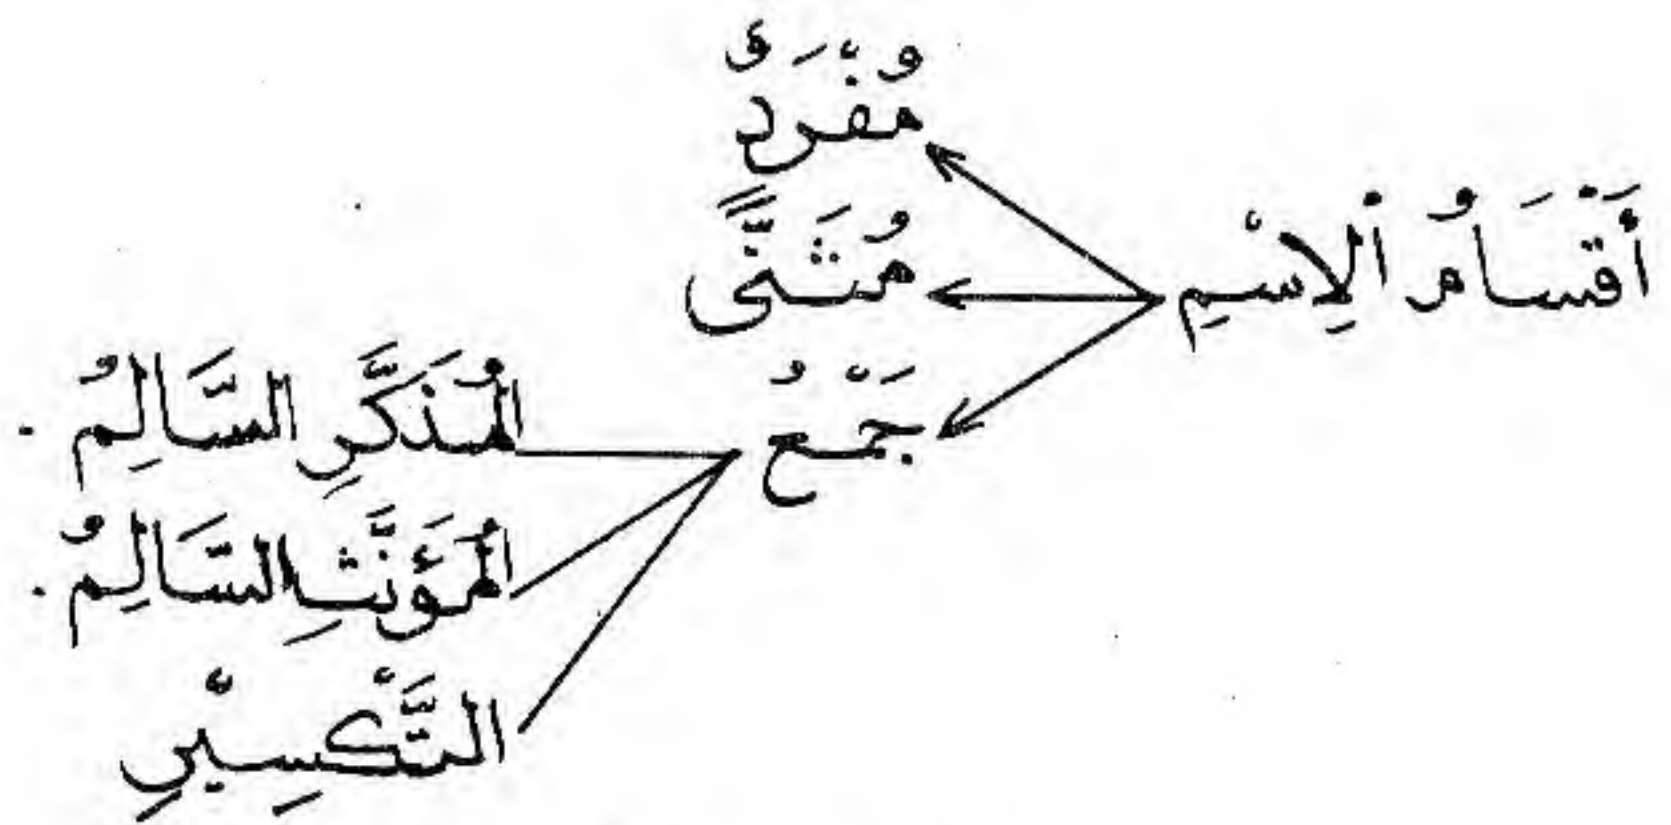 أَقْسَامُ ٱلْاِسْمِ
مُفْرَدٌ
مُثَنًّى
جَمْعُ
الْمُذَكَّرِ السَّالِمُ .
الْمُؤَنَّثِ السَّالِمُ .
التَّكْسِيْرِ